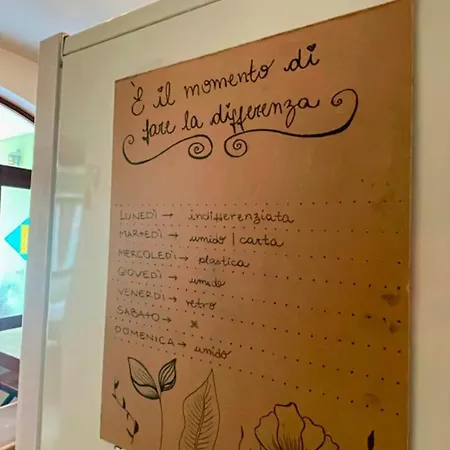 È il momento di
fare la differenza
LUNEDÌ → indifferenziata
MARTEDÌ → umido | carta
MERCOLEDÌ → plastica
GIOVEDÌ → umido
VENERDÌ → vetro
SABATO → x
DOMENICA → umido